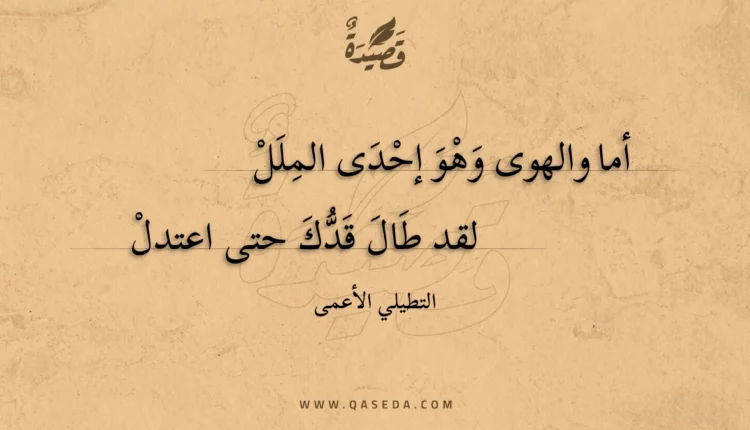 قَصِيدَةٌ
أما والهوى وَهْوَ إحْدَى المِلَلْ
لقد طَالَ قَدُّكَ حتى اعتدلْ
التطيلي الأعمى
WWW.QASEDA.COM